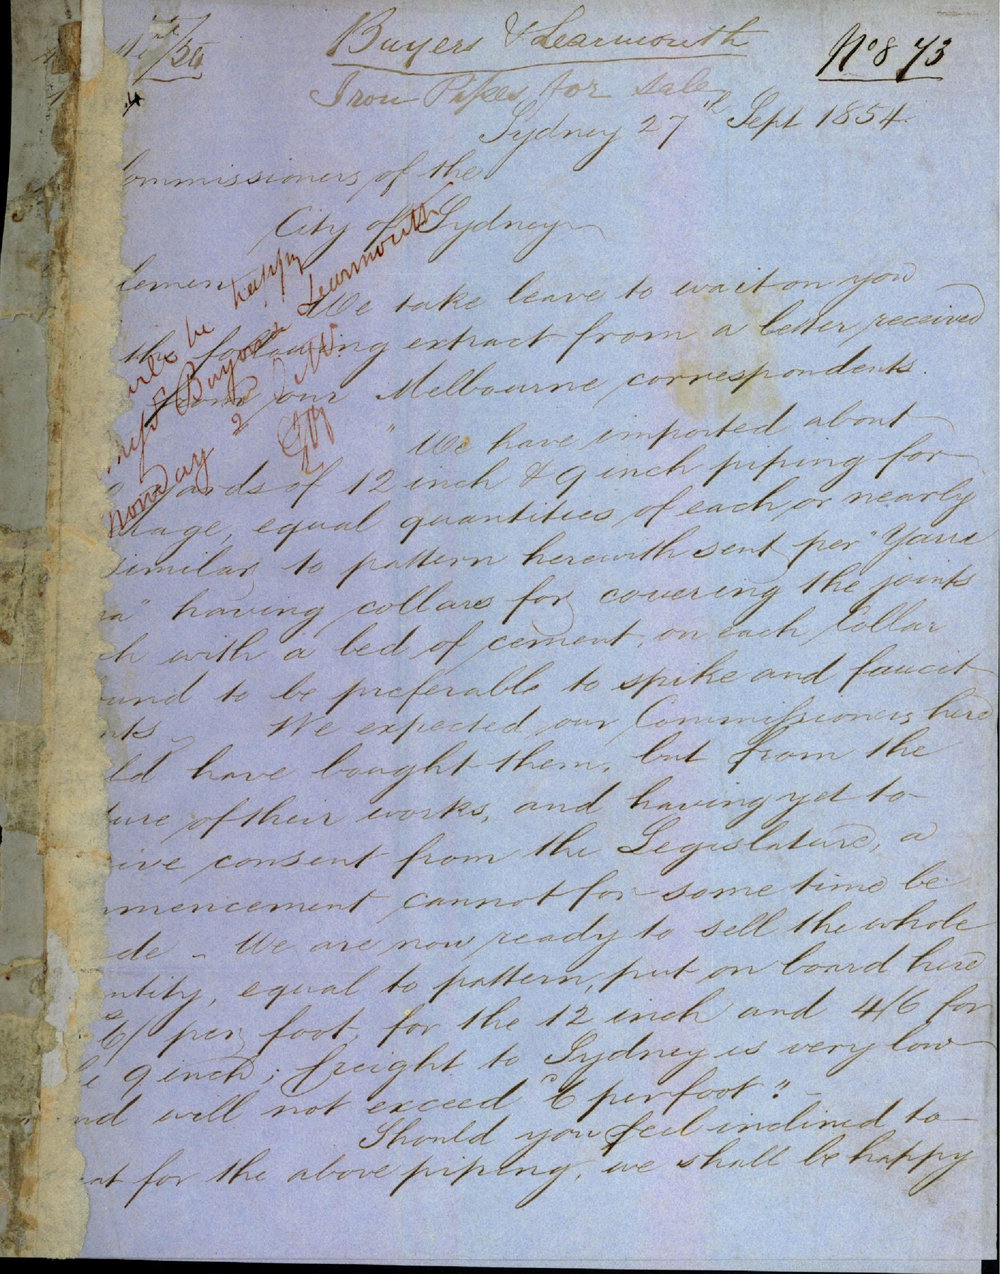 Buyers & Learmouth
No 873
Iron Pipes for Sale
Sydney 27th Sept 1854.
Commissioners of the
City of Sydney
lemen
We take leave to wait on you
the following extract from a letter received
from our Melbourne correspondents.
"We have imported about
yards of 12 inch & 9 inch piping for
age, equal quantities of each, or nearly
similar to pattern herewith sent per "Yarra
ra" having collars for covering the joints
ch with a bed of cement, on each Collar
und to be preferable to spike and faucet
nts - We expected our Commissioners here
ld have bought them, but from the
ture of their works, and having yet to
ive consent from the Legislature, a
mmencement cannot for some time be
de - We are now ready to sell the whole
ntity, equal to pattern, put on board here
6/ per foot, for the 12 inch and 4/6 for
e 9 inch; freight to Sydney is very low
and will not exceed 6 per foot".-
Should you feel inclined to
at for the above piping, we shall be happy
will be happy
Buyers & Learmouth
Monday 2